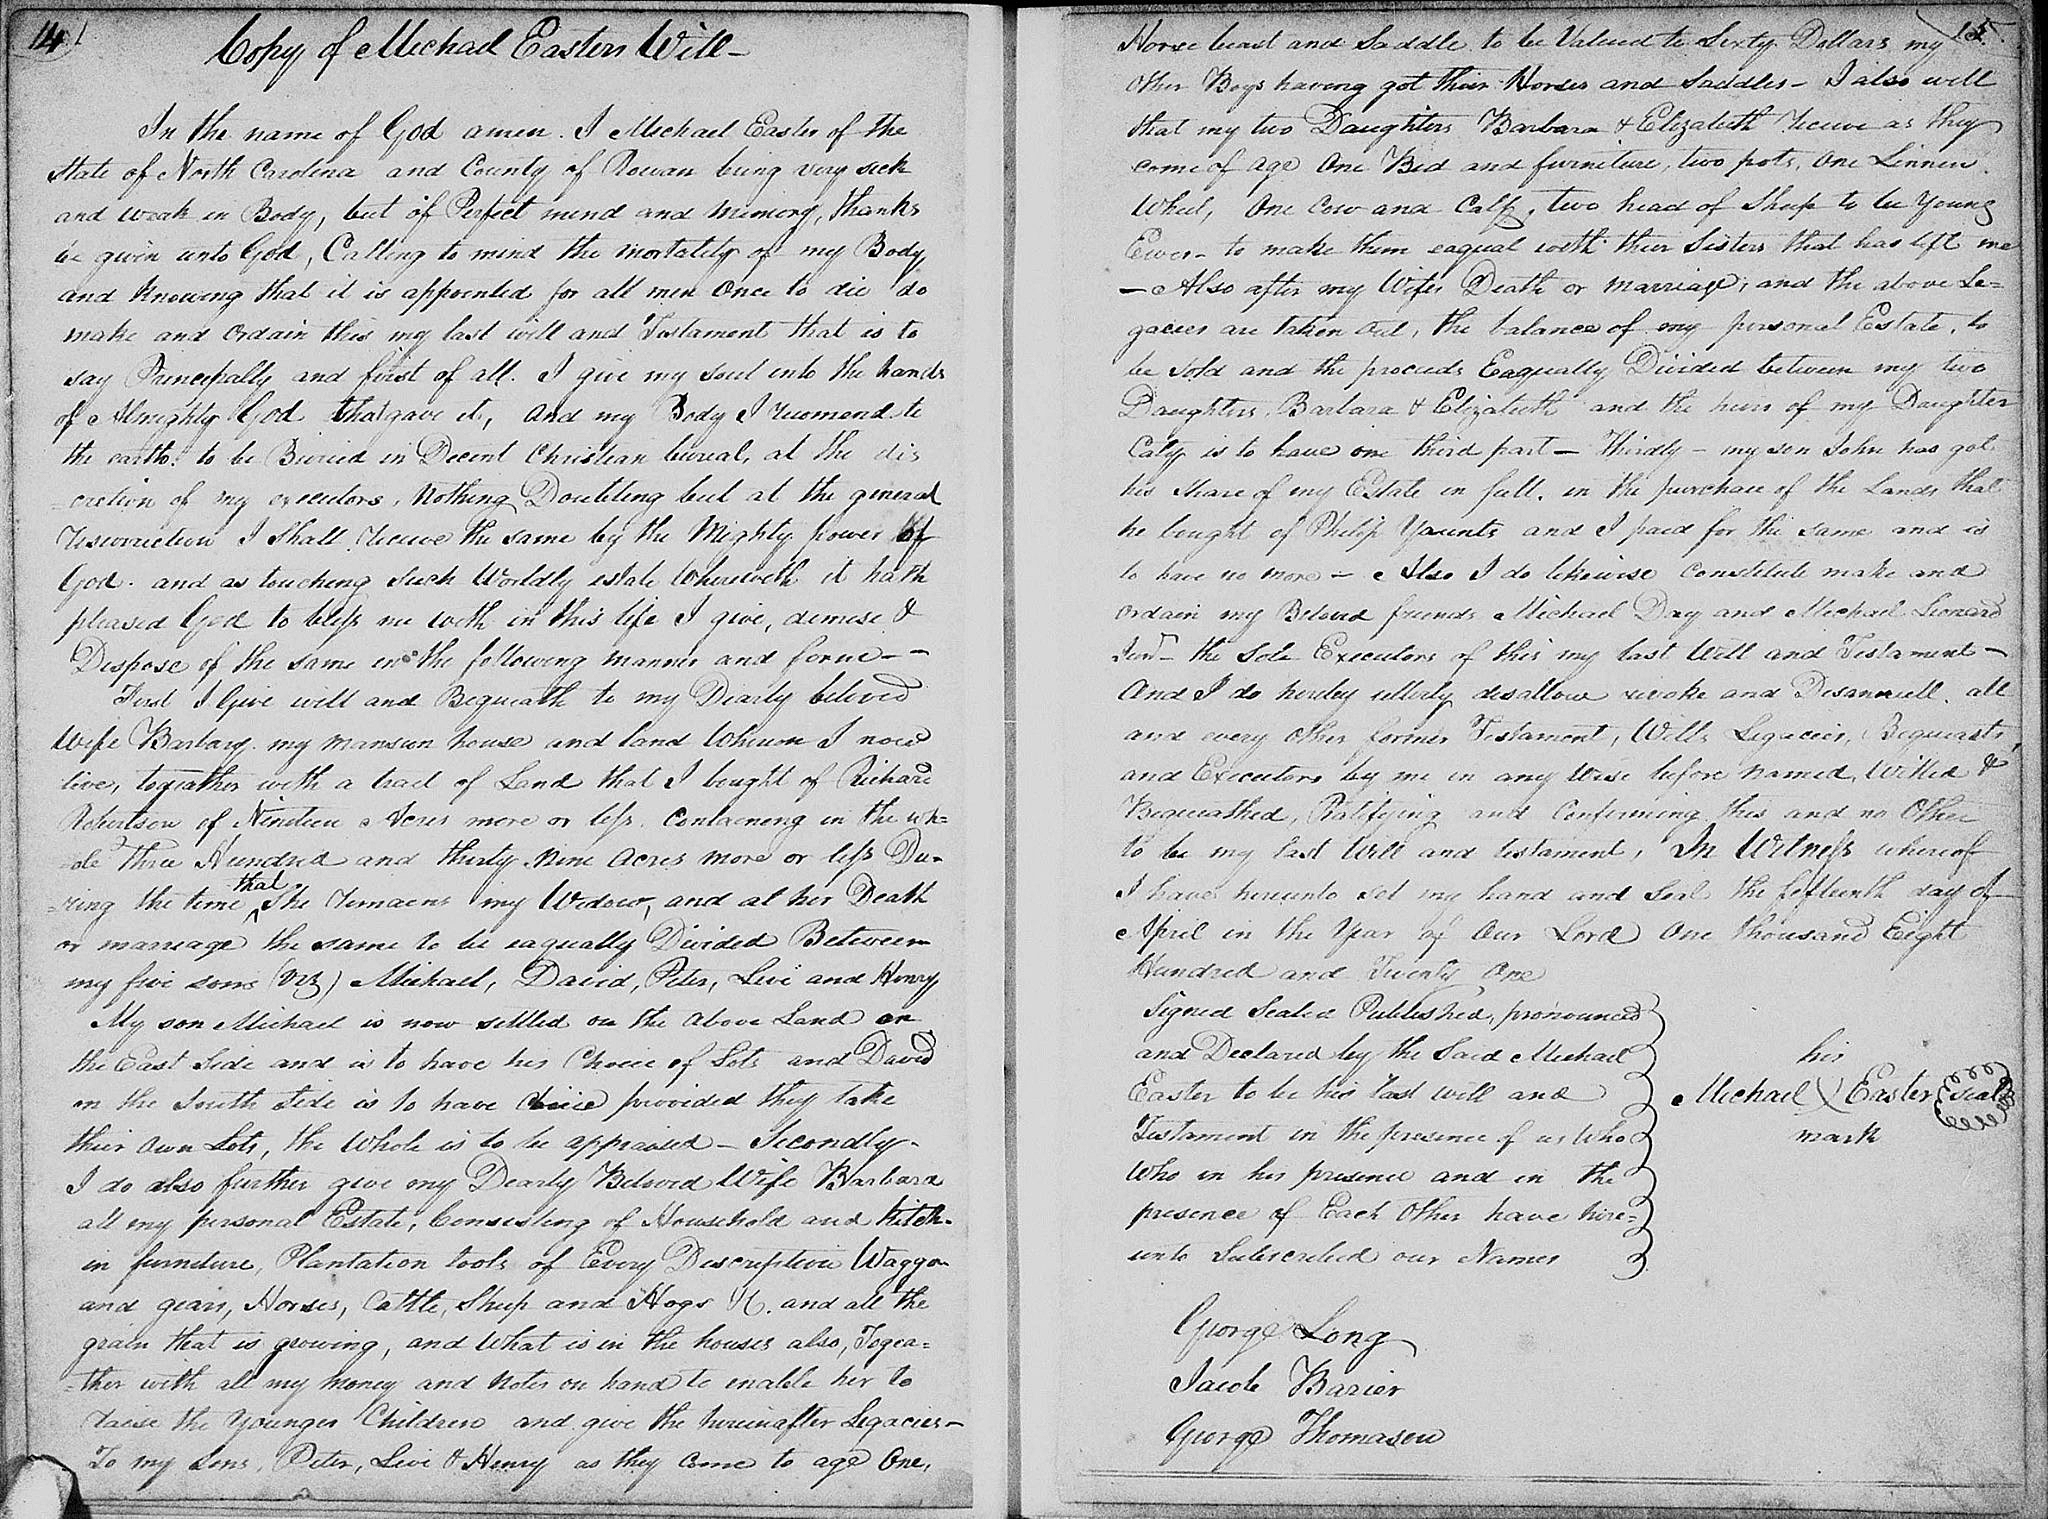 14
Copy of Michael Easters Will -
In the name of God amen. I Michael Easter of the
State of North Carolina and County of Rowan being very sick
and weak in Body, but of Perfect mind and memory, thanks
be given unto God, Calling to mind the mortality of my Body
and knowing that it is appointed for all men once to die do
make and ordain this my last will and Testament that is to
say Principally and first of all. I give my soul into the hands
of Almighty God that gave it, and my Body I recomend to
the earth. to be Buried in Decent Christian burial, at the dis
-cretion of my executors, Nothing Doubting but at the general
resurrection I shall receive the same by the Mighty power of
God. and as touching such Worldly estate wherewith it hath
pleased God to bless me with in this life I give, demise &
Dispose of the same in the following manner and form - -
First I Give will and Bequeath to my Dearly beloved
Wife Barbary my mansion house and land Whereon I now
live, togeather with a tract of Land that I bought of Richard
Robertson of Nineteen Acres more or less. Containing in the wh-
-ole three Hundred and thirty Nine Acres more or less Du-
-ring the time that She remains my Widow, and at her Death
or marriage the same to be eaqually Divided Between
my five sons (viz) Michael, David, Peter, Levi and Henry
My son Michael is now settled on the above Land on
the East Side and is to have his Choice of Lots and David
on the South Side is to have choice provided they take
their own Lots, the Whole is to be appraised - Secondly -
I do also further give my Dearly Beloved Wife Barbara
all my personal Estate, Consisting of Household and kitch-
in furniture, Plantation tools of Every Description Waggon
and gears, Horses, Cattle, Sheep and Hogs &c. and all the
grain that is growing, and What is in the houses also, Togea-
-ther with all my money and notes on hand to enable her to
raise the Younger Children and give the hereinafter Legacies -
To my sons, Peter, Levi & Henry as they come to age One,
15
Horse beast and Saddle to be Valued to Sixty Dollars my
other Boys having got their Horses and Saddles - I also will
that my two Daughters Barbara & Elizabeth receive as they
come of age One Bed and furniture, two pots, One Linnen
Wheel, One Cow and Calf, two head of Sheep to be Young
Ewes - to make them eaqual with their Sisters that has left me
- Also after my Wifes Death or marriage, and the above Le-
gacies are taken out, the balance of my personal Estate, to
be Sold and the proceeds Eaqually Divided between my two
Daughters Barbara & Elizabeth and the heirs of my Daughter
Caty is to have one third part - Thirdly - my son John has got
his share of my Estate in full. in the purchase of the Lands that
he bought of Philip Yaunts and I paid for the same and is
to have no more - Also I do likewise constitute make and
ordain my Beloved friends Michael Day and Michael Leonard
Junr - the Sole Executors of this my last Will and Testament -
And I do hereby utterly disallow revoke and Disannull all
and every other former Testament, Wills Legacies, Bequeasts,
and Executors by me in any Wise before named, Willed &
Bequeathed, Ratifying and Confirming this and no Other
to be my last Will and testament, In Witness whereof
I have hereunto set my hand and Seal the fifteenth day of
April in the Year of Our Lord One thousand Eight
Hundred and Twenty One
Signed Sealed Published, pronounced
and Declared by the Said Michael
Easter to be his last will and
Testament in the presence of us Who
Who in his presence and in the
presence of Each Other have here-
unto Subscribed our Names
his
Michael X Easter Seal
mark
George Long
Jacob Barier
George Thomason